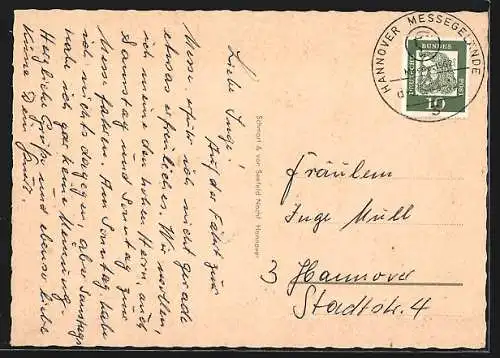 Liebe Inge!
Auf der Fahrt zur
Messe erfuhr ich nicht gerade
etwas erfreuliches. Wir sollen,
ich meine den hohen Herrn, auch
Samstag und Sonntag zur
Messe fahren. Am Sonntag habe
ich nichts dagegen, aber Samstags
habe ich gar keine Meinung.
Herzliche Grüße und ebenso liebe
Küsse Dein
Schnort & von Seefeld Nachf. Hannover
HANNOVER MESSEGELÄNDE
DEUTSCHE BUNDESPOST
10
Fräulein
Inge Mull
3 Hannover
Stadtstr. 4